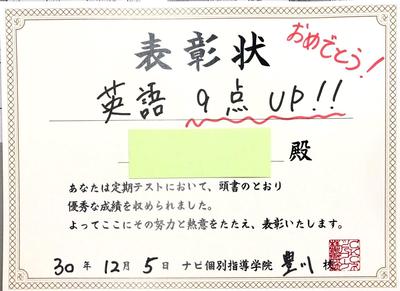 おめでとう!
表彰状
英語 9点 UP!!
殿
あなたは定期テストにおいて、頭書のとおり
優秀な成績を収められました。
よってここにその努力と熱意をたたえ、表彰いたします。
30年12月5日 ナビ個別指導学院 豊川校